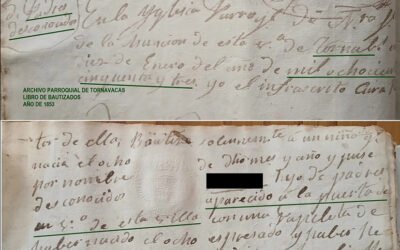 desconocado
En la Yglesia Parroql. de Ntra.
de la Asuncion de esta va. de Tornabs.
diez de Enero del año de mil ochocien
cinquenta y tres yo el infrascrito Cura
ARCHIVO PARROQUIAL DE TORNAVACAS
LIBRO DE BAUTIZADOS
AÑO DE 1853
tor de ella, Bautize solemnemente a un niño q
nacio el ocho de dho mes y año y puse
por nombre hijo de padres
desconocidos aparecido a la puerta de
de esta villa con una papeleta de
el ocho espresado y